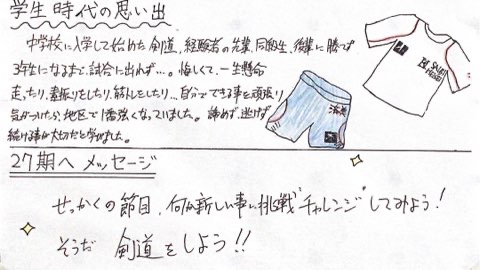 学生時代の思い出
中学校に入学して始めた剣道、経験者の先輩、同級生、後輩に勝てず
3年生になるまで、試合に出れず…。悔しくて、一生懸命
走ったり、素振りをしたり、筋トレをしたり…自分でできる事を頑張り
気がついたら、地区で1番強くなっていました。諦めず、逃げず
続ける事が大切だと学びました。
27期へメッセージ
せっかくの節目、何か新しい事に挑戦"チャレンジ"してみよう!
そうだ 剣道をしよう!!